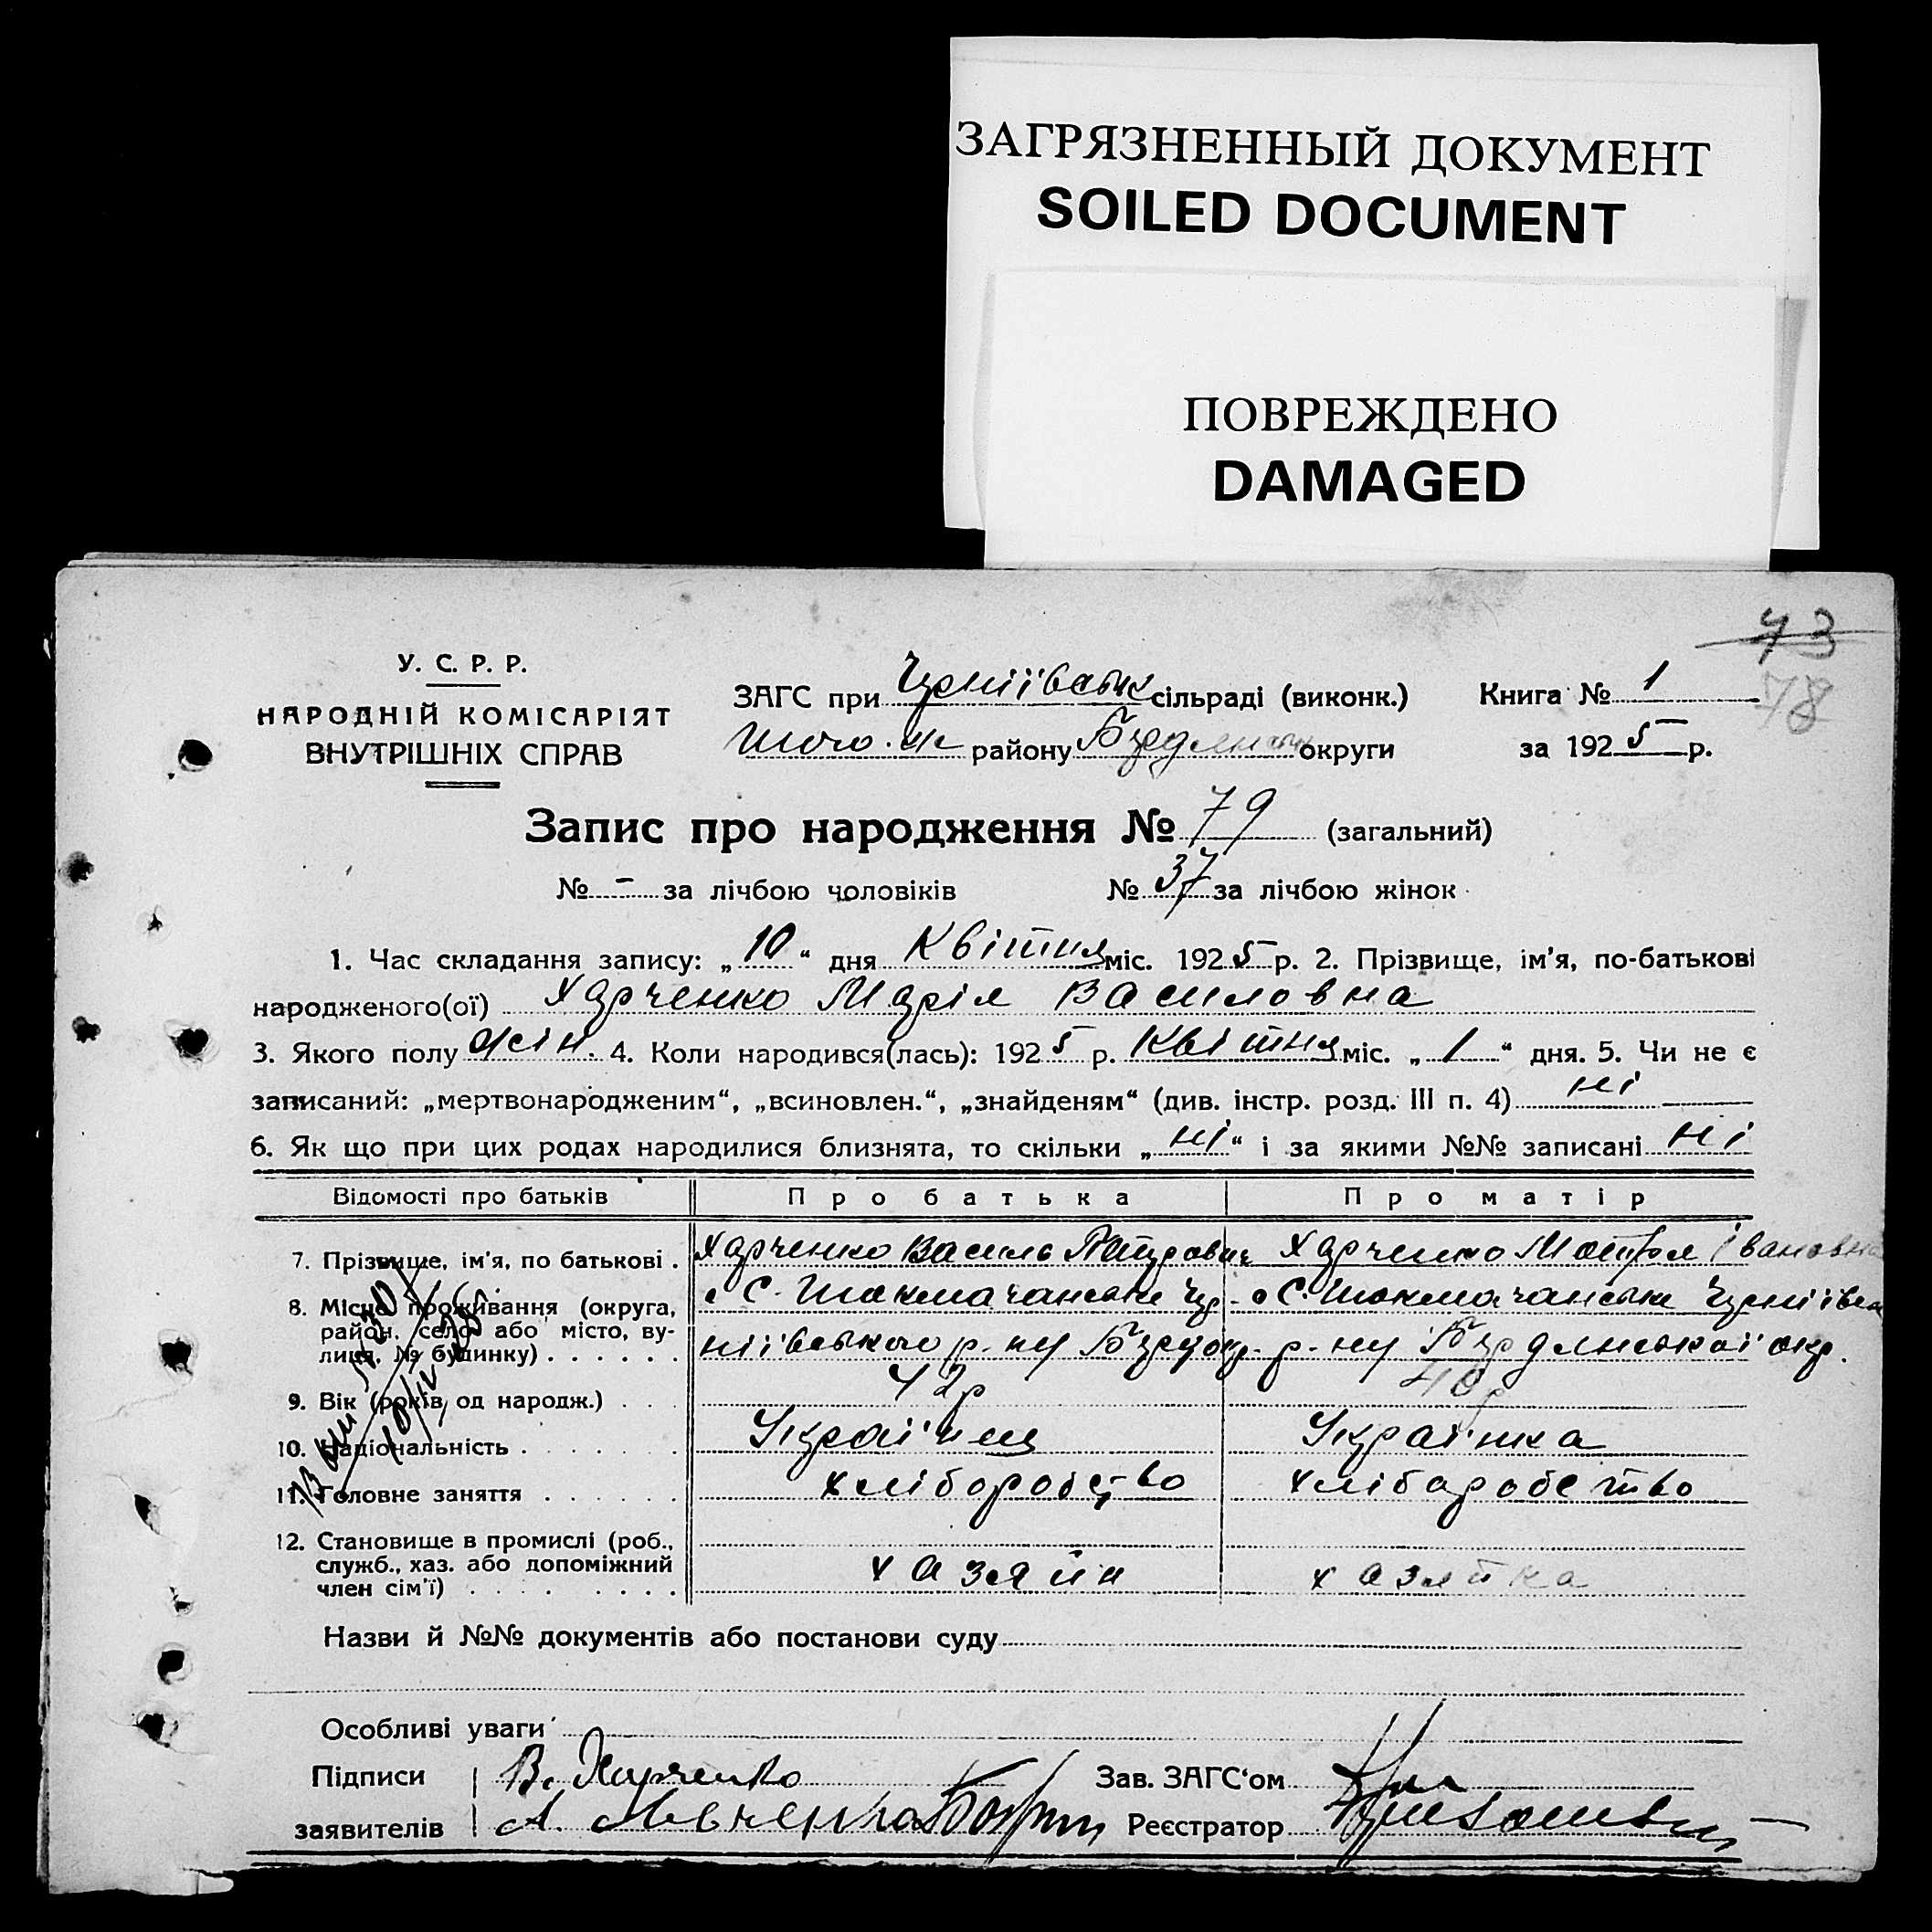 ЗАГРЯЗНЕННЫЙ ДОКУМЕНТ
SOILED DOCUMENT
ПОВРЕЖДЕНО
DAMAGED
73
78
У. С. Р. Р.
НАРОДНІЙ КОМІСАРІЯТ
ВНУТРІШНІХ СПРАВ
ЗАГС при сільраді (виконк.) Книга № 1
району округи за 1925 р.
Запис про народження № 79 (загальний)
№ - за лічбою чоловіків № 37 за лічбою жінок
1. Час складання запису: „10“ дня Квітня міс. 1925 р. 2. Прізвище, ім'я, по-батькові
народженого(ої) Харченко Марія Василовна
3. Якого полу жін. 4. Коли народився(лась): 1925 р. Квітня міс. „1“ дня. 5. Чи не є
записаний: „мертвонародженим“, „всиновлен.“, „знайденям“ (див. інстр. розд. III п. 4) ні
6. Як що при цих родах народилися близнята, то скільки „ні“ і за якими №№ записані ні
Відомості про батьків Про батька Про матір
7. Прізвище, ім'я, по батькові . Харченко Василь Петрович Харченко Мотря Івановна
8. Місце проживання (округа,
район, село або місто, ву-
лиця, № будинку) . . . . . .
9. Вік (років од народж.) . . . 42р 40р
10. Національність . . . . . . Українец Українка
11. Головне заняття . . . . . . хліборобство хлібаробство
12. Становище в промислі (роб.,
служб., хаз. або допоміжний
член сім'ї) . . . . . . . . хазяйн хазяйка
Назви й №№ документів або постанови суду
Особливі уваги
Підписи В. Харченко Зав. ЗАГС'ом
заявителів А. Реєстратор